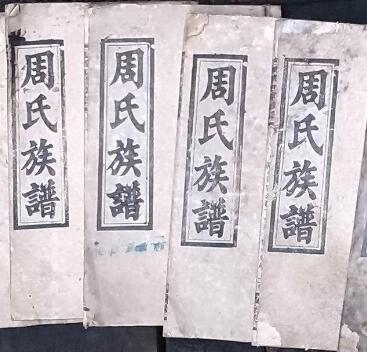 周氏族譜
周氏族譜
周氏族譜
周氏族譜